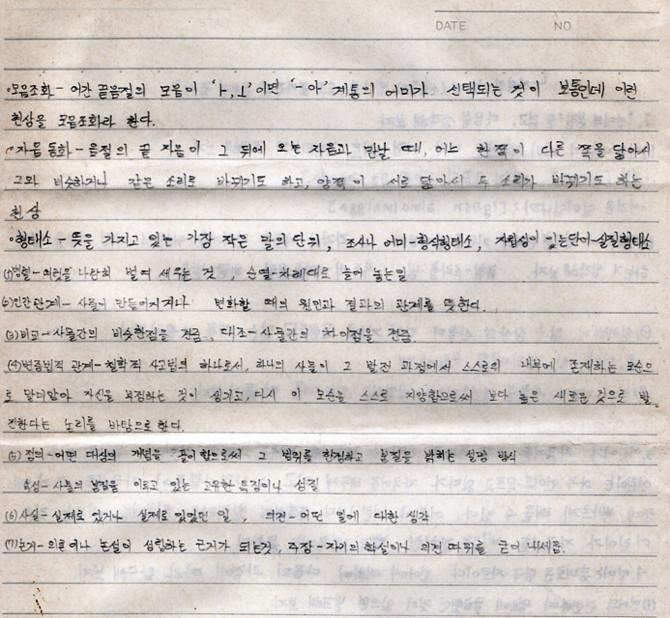 DATE NO
·모음조화 - 어간 끝음절의 모음이 'ㅏ,ㅗ'이면 '-아' 계통의 어미가 선택되는 것이 보통인데 이런
현상을 모음조화라 한다.
·자음 동화 - 음절의 끝 자음이 그 뒤에 오는 자음과 만날 때, 어느 한쪽이 다른 쪽을 닮아서
그와 비슷하거나 같은 소리로 바뀌기도 하고, 양쪽이 서로 닮아서 두 소리가 바뀌기도 하는
현상
·형태소 - 뜻을 가지고 있는 가장 작은 말의 단위, 조사나 어미-형식형태소, 자립성이 있는단어-실질형태소
(1)병렬-의견을 나란히 벌여 세우는 것, 순열-차례대로 늘어 놓는일
(2)인간단계-사물이 만들어지거나 변화할 때의 원인과 결과의 관계를 뜻한다.
(3)비교-사물간의 비슷한점을 견줌, 대조-사물간의 차이점을 견줌
(4)변증법적 관계-철학적 사고법의 하나로서, 하나의 사물이 그 발전 과정에서 스스로의 내부에 존재하는 모순으
로 말미암아 자신을 부정하는 것이 생기고, 다시 이 모순을 스스로 지양함으로써 보다 높은 새로운 것으로 발
전한다는 논리를 바탕으로 한다.
(5) 정의-어떤 대상의 개념을 풀이함으로써 그 범위를 한정하고 본질을 밝히는 설명 방식
속성-사물의 본질을 이루고 있는 고유한 특징이나 성질
(6)사실-실제로 있거나 실제로 있었던 일, 의견-어떤 일에 대한 생각
(7)논거-의론이나 논설이 성립하는 근거가 되는것, 주장-자기의 학설이나 의견 따위를 굳이 내세움.